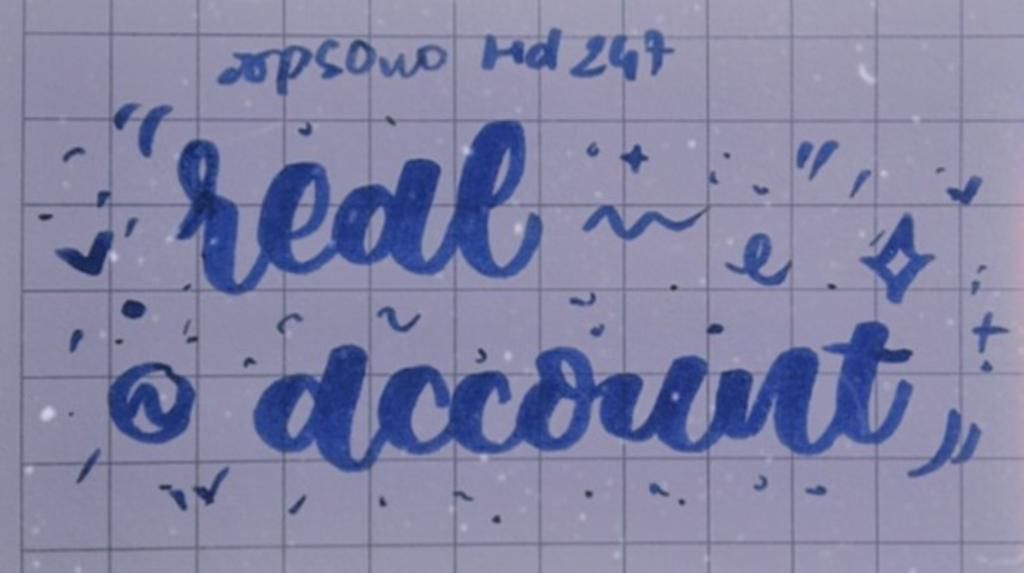 Hd 247
“real ~ e
@ account”